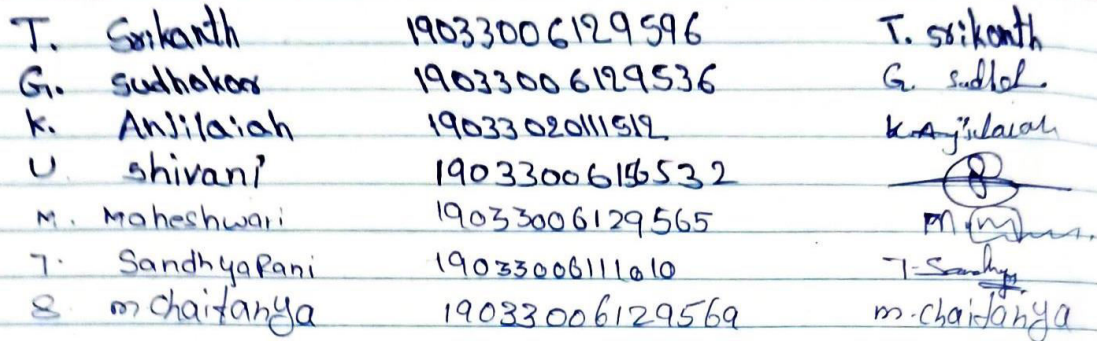 T. Srikanth 19033006129596 T. srikanth
G. Sudhakar 19033006129536 G. Sudhak
K. Anjilaiah 19033020111512 K Anjilaiah
U. Shivani 19033006156532
M. Maheshwari 19033006129565 M.
7. SandhyaRani 19033006111010 7-Sandhya
8 m chaitanya 19033006129569 m.chaitanya